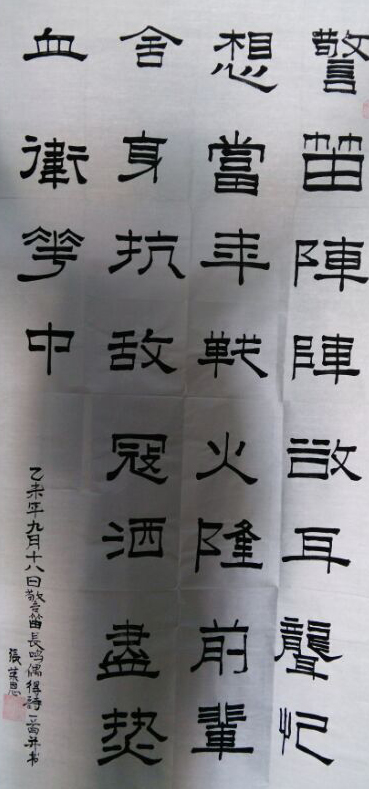 警笛陣陣啟耳聾忆
想當年戰火隆前輩
舍身抗敌寇洒盡热
血衛華中
乙未年九月十八日警笛長鸣偶得詩一首并书
張